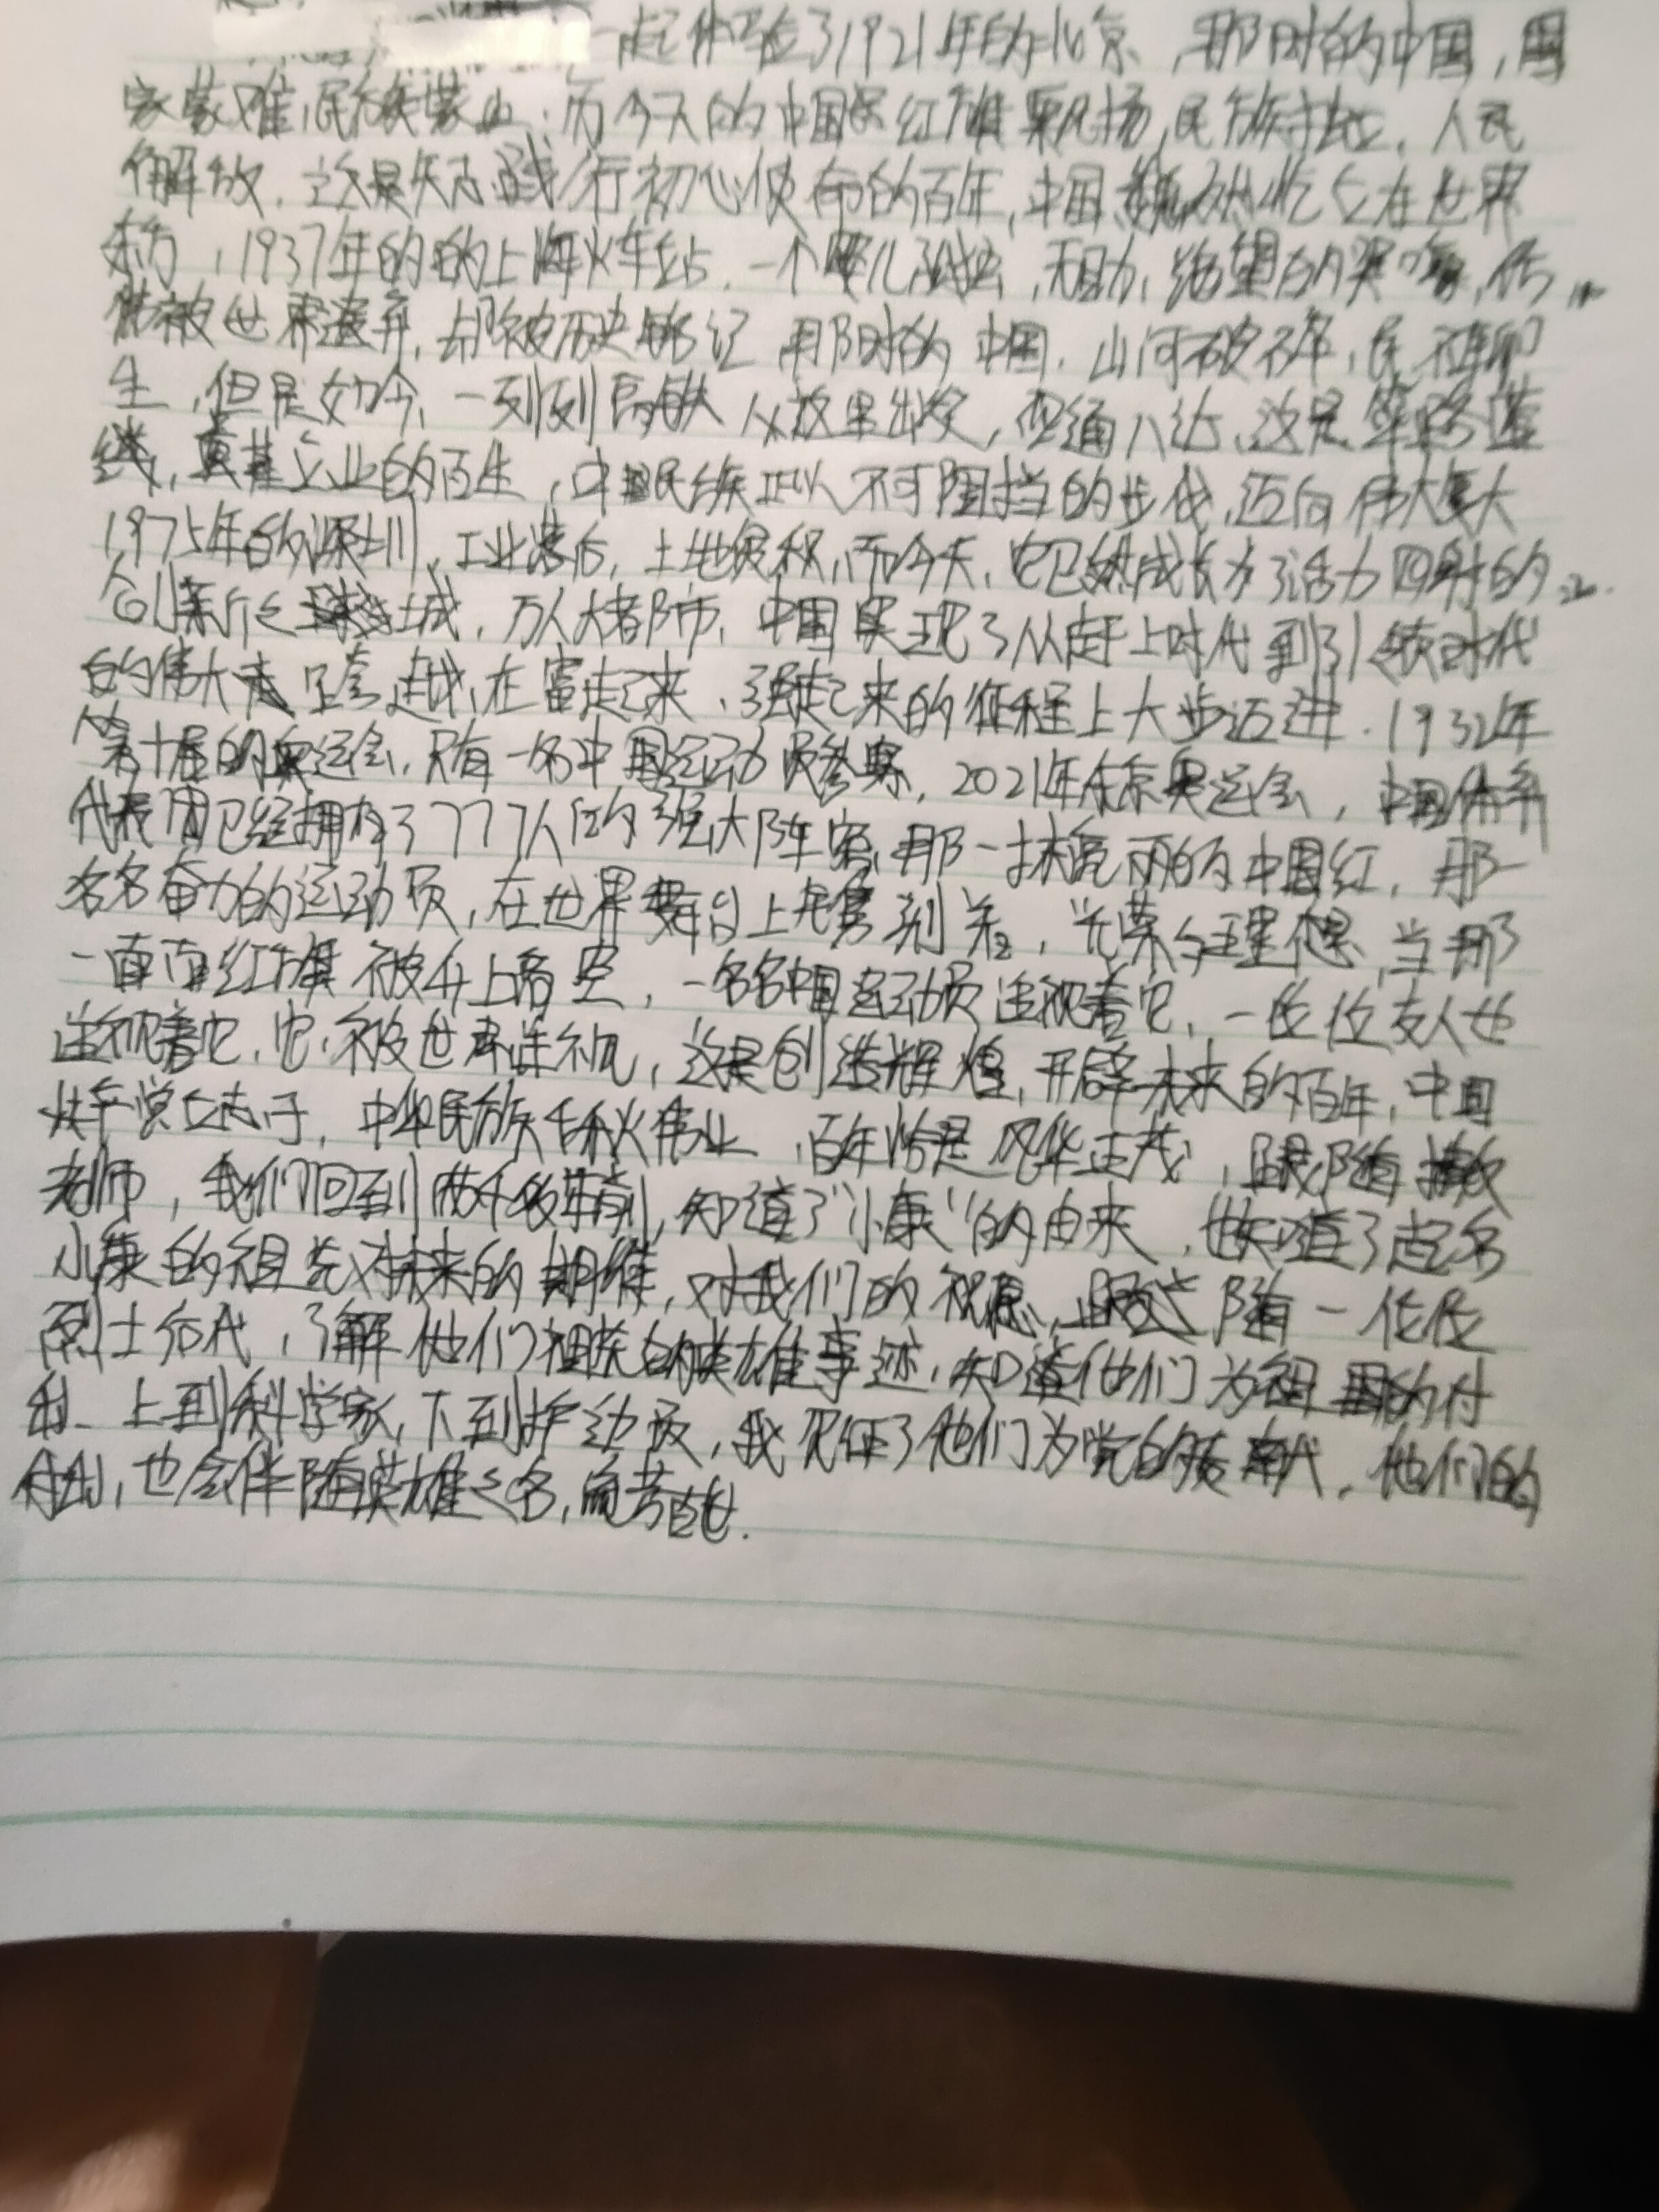 一起体验了1921年的北京,那时的中国,国
家蒙难,民族蒙 而今天的中国 红旗飘扬,民族 ,人民
解放.这是矢志践行初心使命的百年,中国巍然屹立在世界
东方,1937年的的上海火车站.一个婴儿孤 ,无助,绝望的哭
被世界遗弃,却被历史 记 那时的中国.山河破碎,民不聊
生,但是如今,一列列高铁从这里出发,四通八达,这是筚路蓝
缕,奠基立业的百 ,中 民族正以不可阻挡的步伐,迈向伟大复大
1975年的深圳,工业落后,土地 ,而今天,它已然成长为了活力四射的
创新之 城,万人大都市,中国实现了从赶上时代到引领时代
的伟大 跨越,在富起来、强起来的征程上大步迈进.1932年
第十届的奥运会,只有一名中国运动员参 ,2021年东京奥运会,中国体系
代表团已经拥有了777人的强大阵容,那一抹亮丽的中国红,那一
名名奋力的运动员,在世界舞台上 ,光荣与理想,当那
一面面红旗被升上高空,一名名中国运动员注视着它,一位位友人也
注视着它,它,被世界注视,这是创造辉煌,开辟未来的百年,中国
共产党立志于,中华民族千秋伟业,百年恰是风华正茂,跟随
老师,我们回到两千多年前,知道了"小康"的由来,也知道了起名
小康的祖先对未来的期待,对我们的祝愿, 随一位位
烈士后代,了解他们祖 的英雄事迹,知道他们为祖国的付
出.上到科学家,下到护边员,我见证了他们为党的 献,他们的
付出,也会伴随英雄之名,